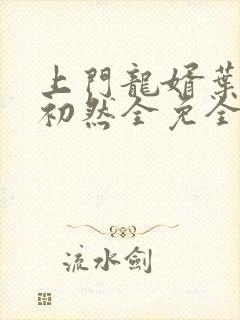 上門龍婿葉
初然全免全
流水劍